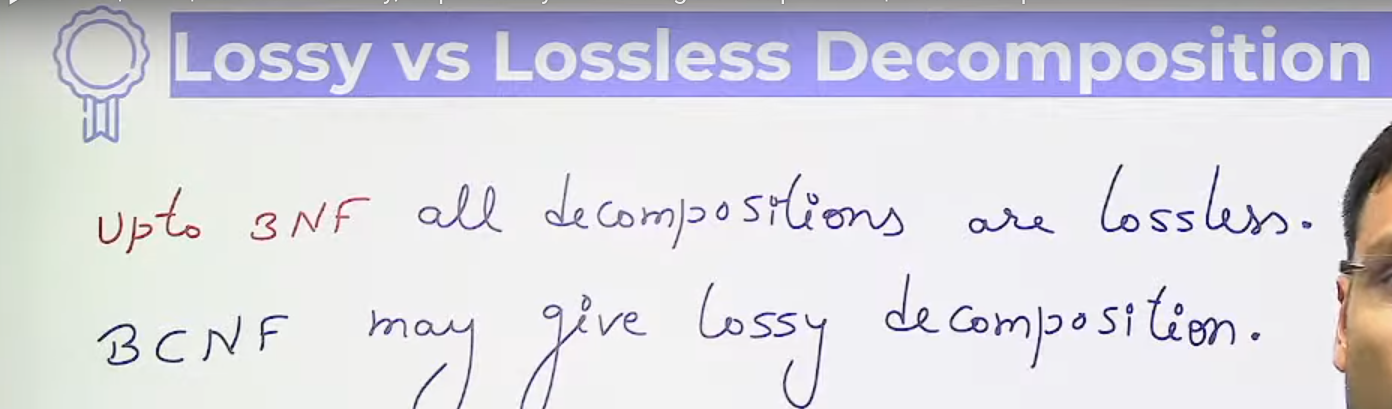 Lossy vs Lossless Decomposition
Upto 3NF all decompositions are lossless.
BCNF may give lossy decomposition.